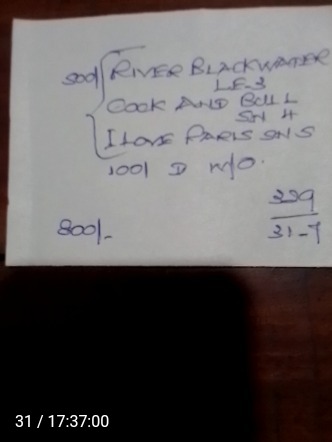 500/ { RIVER BLACKWATER
LE-3
COOK AND BULL
SN 4
I LOVE PARIS SN 5
100/ D W/O.
800/-
339
31-7
31 / 17:37:00